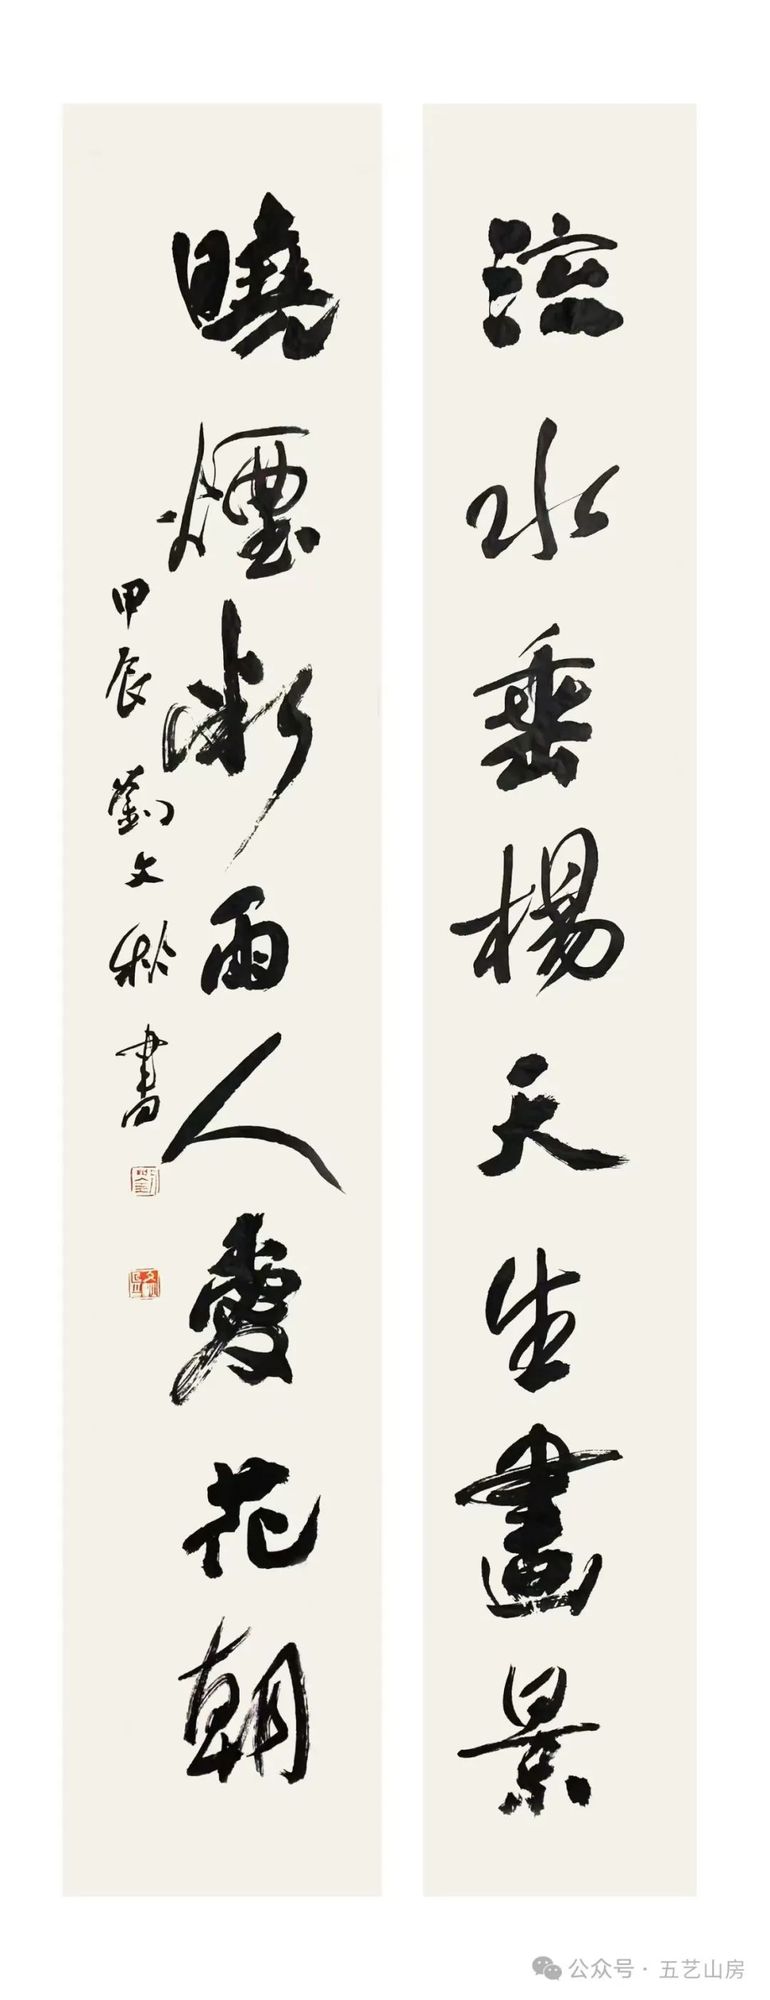 流水垂楊天生畫景
曉煙断雨人愛花朝
甲辰劉文秋書
公众号·五艺山房